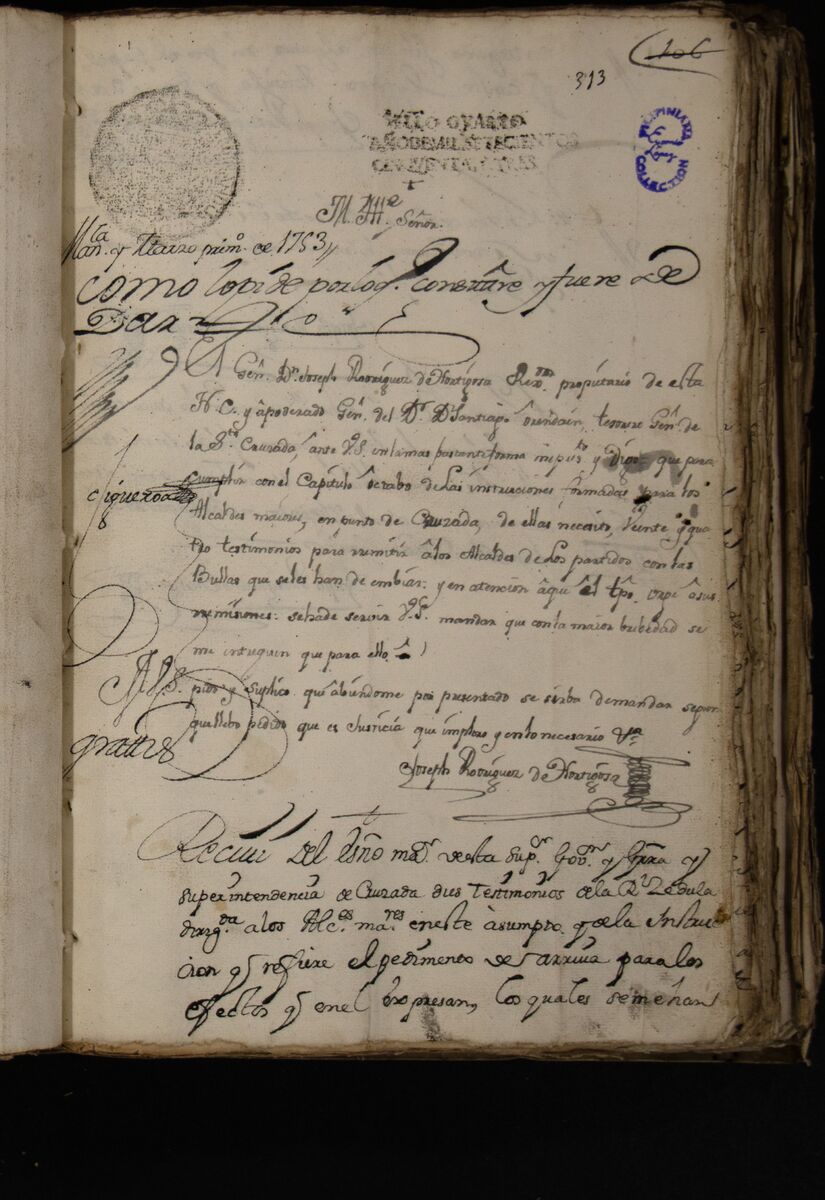 106
313
SELLO QVARTO
AÑO DE MIL SETECIENTOS
CINQVENTA, Y TRES.
FILIPINIANA COLLECTION
M. Ille
Señor.
Man.la y Marzo prim.o de 1753,,
Como lo pide por lo q.e constare y fuere de
Dar
El Gen.l Dn. Joseph Rodriguez de Hortigosa Rex.or proprietario de esta
N. C. y apoderado Gen.l del Dr. Dn Santiago orendain, tesorero Gen.l de
la S.ta Cruzada, ante V.S. en la mas bastante forma
y Digo que para
Cumplir con el Capitulo octabo de las instrucciones formadas para los
Alcaldes maiores, en punto de Cruzada, de ellas necesito, Veinte y qua
tro testimonios para remitir a los Alcaldes de los partidos con las
Bullas que se les han de embiar: y en atencion â que êl tpô. urge â sus
remisiones: se ha de servir V.S. mandar que con la maior brebedad se
me entreguen que para ello
A V.S. pido y Suplico que abiendome por presentado se sirba de mandar segun
que llebo pedido que es Justicia que imploro y en lo necesario V.a
Figueroa
gratis
Joseph Rodriguez de Hortigosa
Reciui del Esño ma.r de esta Sup.or Gov.no y Grra y
Superintendencia de Cruzada dies Testimonios de la R.l Zedula
dirig.da a los Alc.es ma.res en este âsumpto y de la Instruc
cion q.e refiere el pedimento de arriua para los
efectos q.e en el expresan, los quales se me han